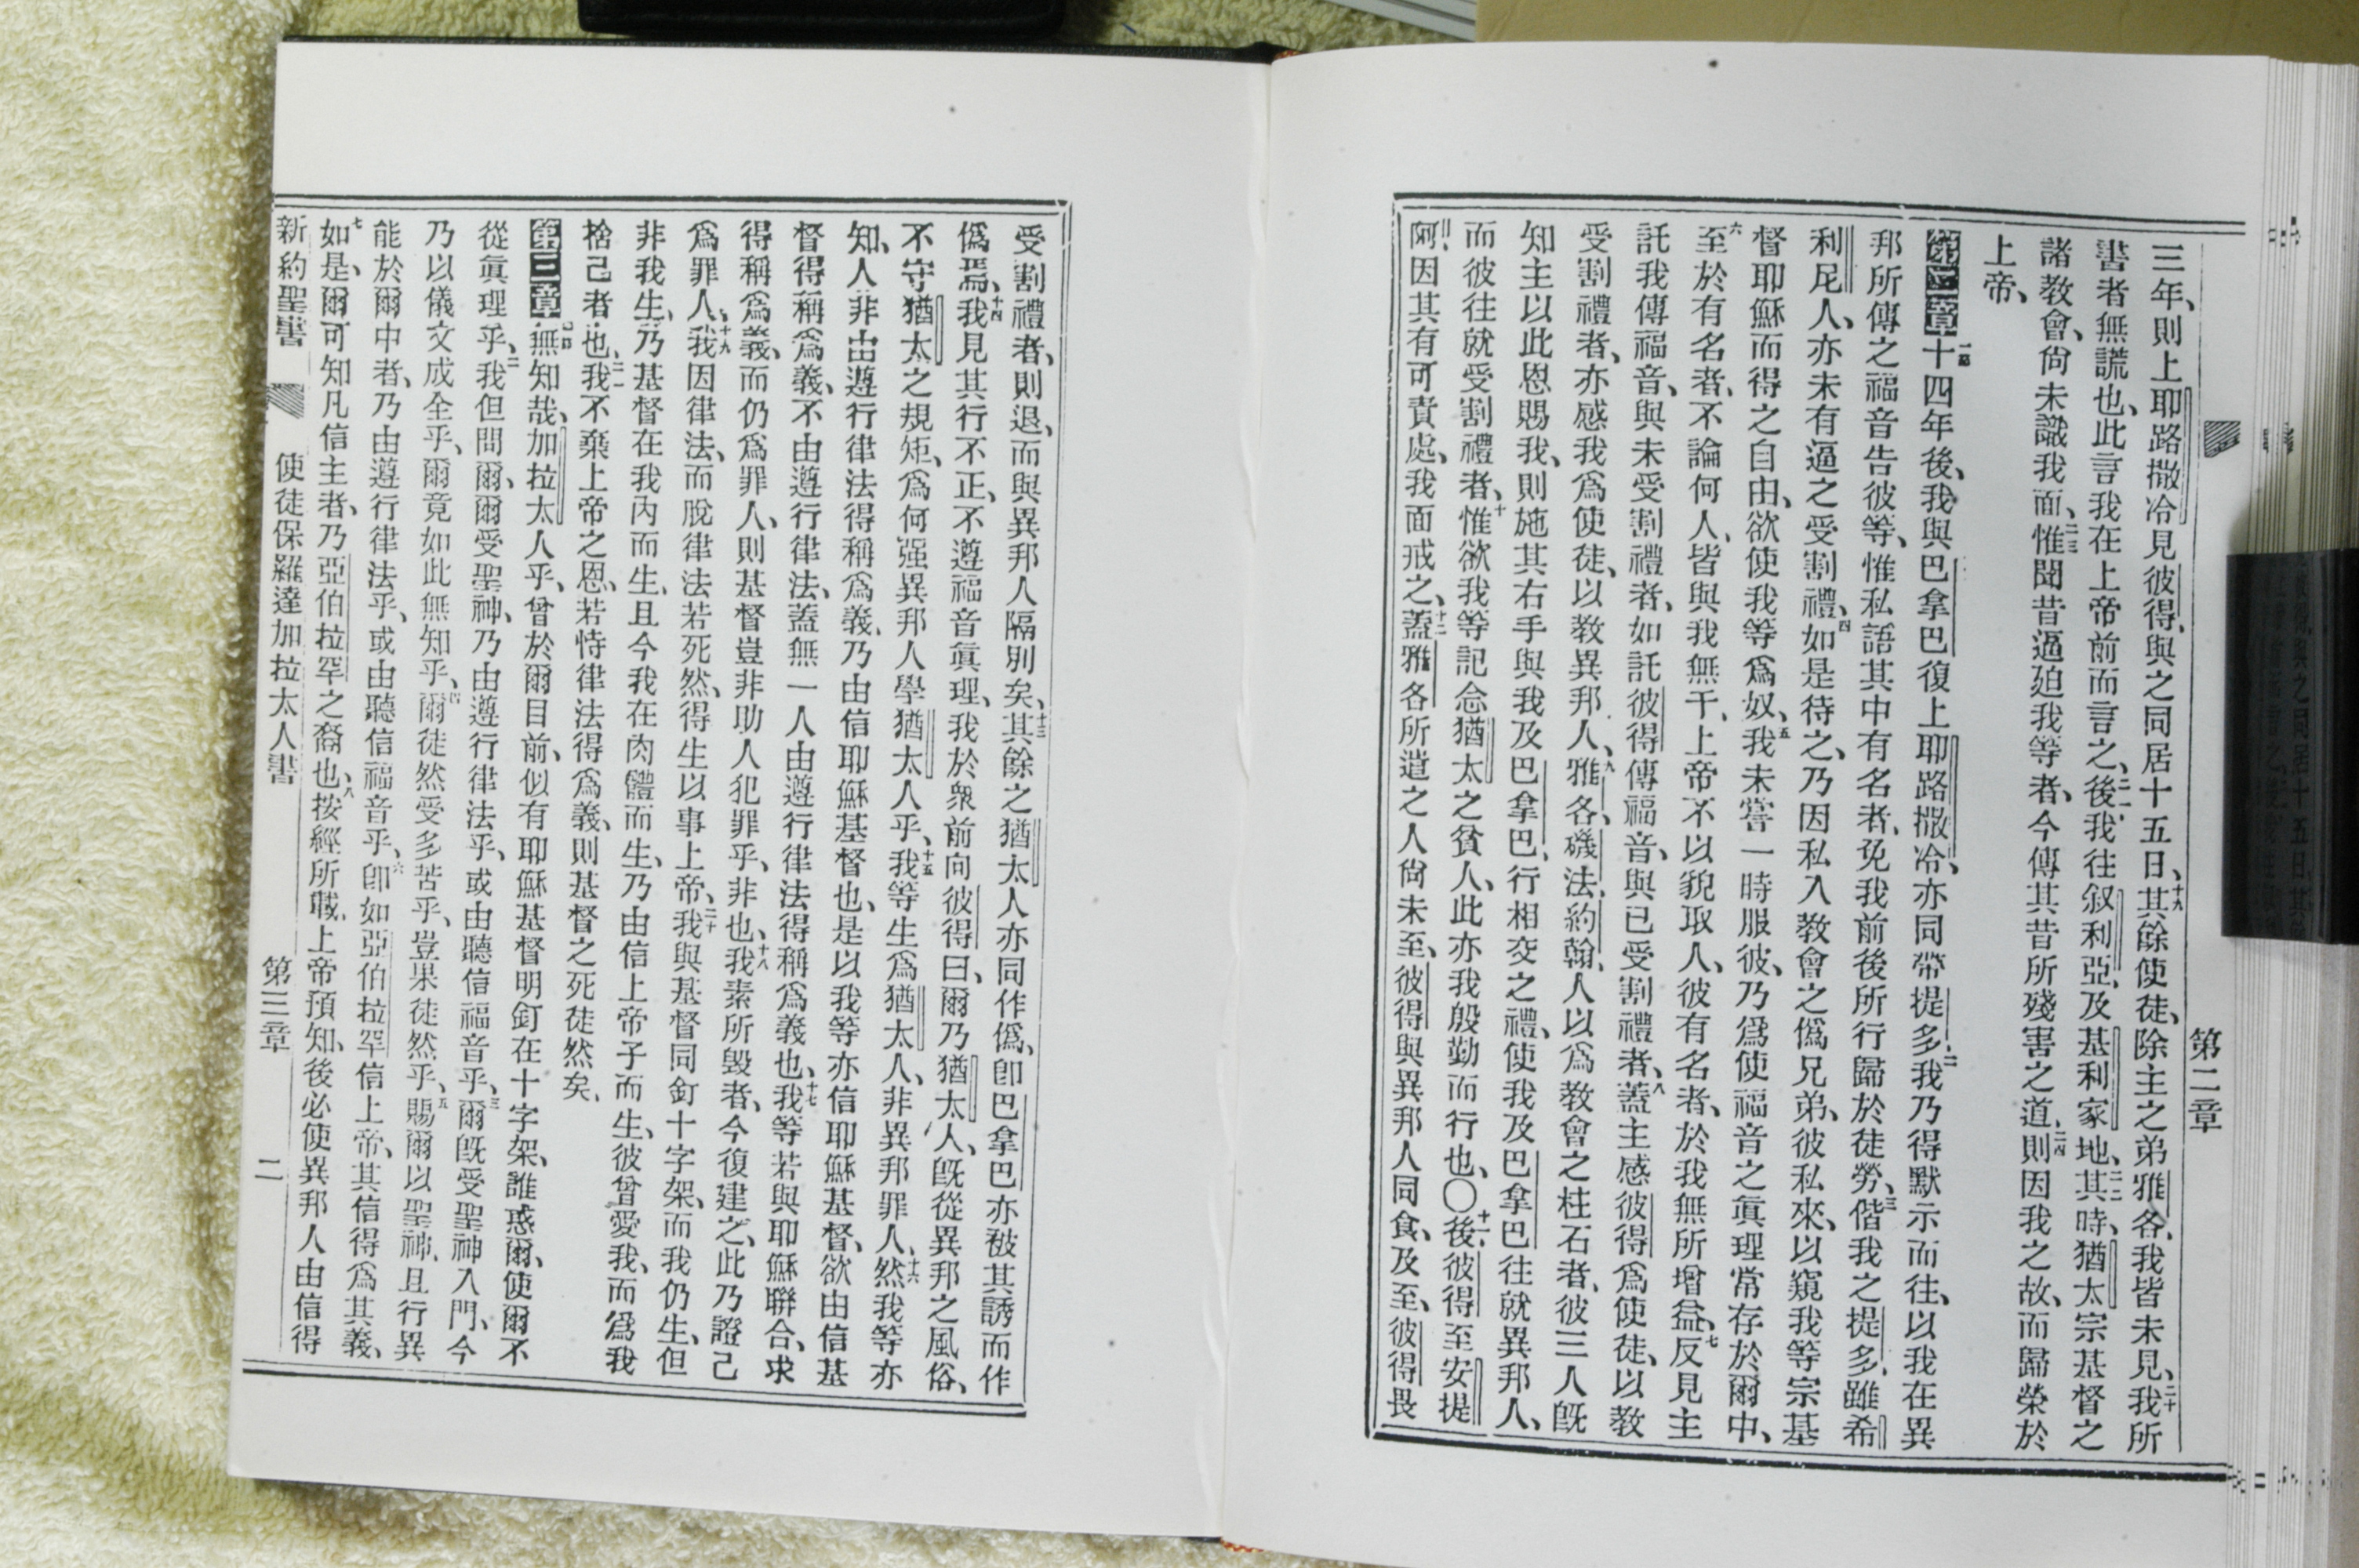 第二章
三年、則上耶路撒冷見彼得、與之同居十五日、十九其餘使徒、除主之弟雅各、我皆未見、二十我所
書者無謊也、此言我在上帝前而言之、二一後我往叙利亞、及基利家地、二二其時、猶太宗基督之
諸教會、尙未識我面、二三惟聞昔逼廹我等者、今傳其昔所殘害之道、二四則因我之故、而歸榮於
上帝、
第二章一節十四年後、我與巴拿巴復上耶路撒冷、亦同帶提多、二我乃得默示而往、以我在異
邦所傳之福音告彼等、惟私語其中有名者、免我前後所行歸於徒勞、三偕我之提多、雖希
利尼人、亦未有逼之受割禮、四如是待之、乃因私入教會之僞兄弟、彼私來、以窺我等宗基
督耶穌而得之自由、欲使我等爲奴、五我未嘗一時服彼、乃爲使福音之眞理常存於爾中、
六至於有名者、不論何人、皆與我無干、上帝不以貌取人、彼有名者、於我無所增益、七反見主
託我傳福音、與未受割禮者、如託彼得傳福音、與已受割禮者、八蓋主感彼得爲使徒、以教
受割禮者、亦感我爲使徒、以教異邦人、九雅各、磯法、約翰、人以爲教會之柱石者、彼三人旣
知主以此恩賜我、則施其右手與我及巴拿巴、行相交之禮、使我及巴拿巴往就異邦人、
而彼往就受割禮者、十惟欲我等記念猶太之貧人、此亦我殷勤而行也、〇十一後、彼得至安提
阿、因其有可責處、我面戒之、十二蓋雅各所遣之人尙未至、彼得與異邦人同食、及至、彼得畏
受割禮者、則退、而與異邦人隔別矣、十三其餘之猶太人亦同作僞、卽巴拿巴亦被其誘而作
僞焉、十四我見其行不正、不遵福音眞理、我於衆前向彼得曰、爾乃猶太人、旣從異邦之風俗、
不守猶太之規矩、爲何强異邦人學猶太人乎、十五我等生爲猶太人、非異邦罪人、十六然我等亦
知、人非由遵行律法得稱爲義、乃由信耶穌基督也、是以我等亦信耶穌基督、欲由信基
督得稱爲義、不由遵行律法、蓋無一人由遵行律法得稱爲義也、十七我等若與耶穌聯合、求
得稱爲義、而仍爲罪人、則基督豈非助人犯罪乎、非也、十八我素所毀者、今復建之、此乃證己
爲罪人、十九我因律法、而脫律法若死然、得生以事上帝、二十我與基督同釘十字架、而我仍生、但
非我生、乃基督在我內而生、且今我在肉體而生、乃由信上帝子而生、彼曾愛我、而爲我
捨己者也、二一我不棄上帝之恩、若恃律法得爲義、則基督之死徒然矣、
第三章一節無知哉、加拉太人乎、曾於爾目前、似有耶穌基督明釘在十字架、誰惑爾、使爾不
從眞理乎、二我但問爾、爾受聖神、乃由遵行律法乎、或由聽信福音乎、三爾旣受聖神入門、今
乃以儀文成全乎、爾竟如此無知乎、四爾徒然受多苦乎、豈果徒然乎、五賜爾以聖神、且行異
能於爾中者、乃由遵行律法乎、或由聽信福音乎、六卽如亞伯拉罕信上帝、其信得爲其義、
七如是、爾可知凡信主者、乃亞伯拉罕之裔也、八按經所載、上帝預知、後必使異邦人由信得
新約聖書 使徒保羅達加拉太人書 第三章 二